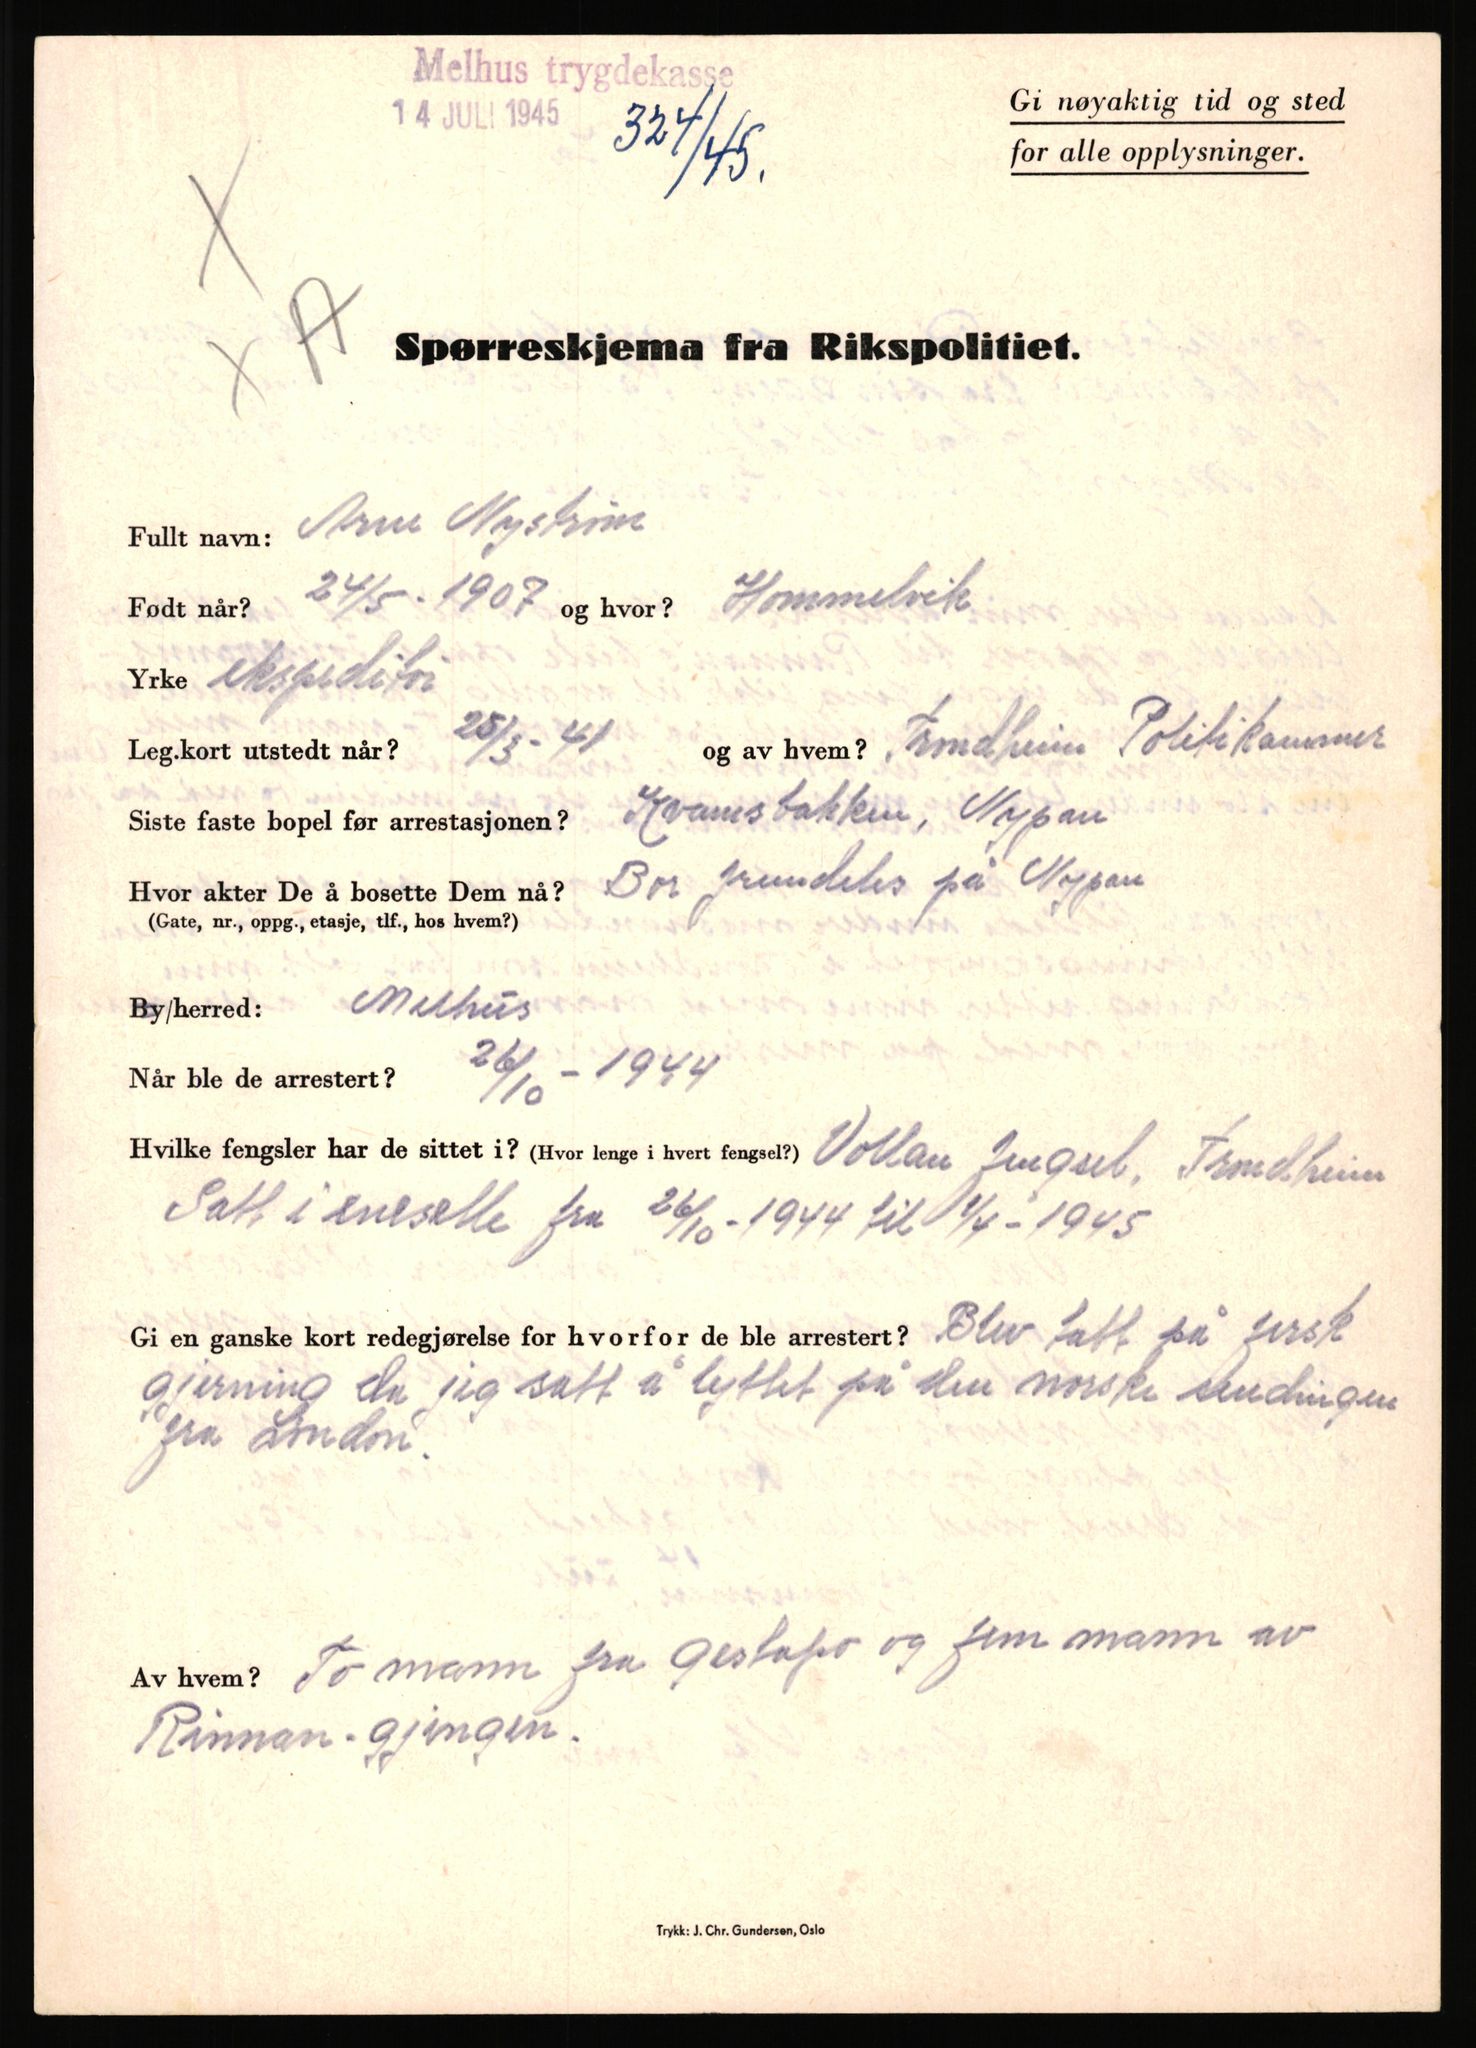 Melhus trygdekasse
14 JULI 1945
324/45.
Gi nøyaktig tid og sted
for alle opplysninger.
X
X A
Spørreskjema fra Rikspolitiet.
Fullt navn: Arne Nystrøm
Født når? 24/5 - 1907 og hvor? Hommelvik
Yrke ekspeditør
Leg.kort utstedt når? 25/3 - 41 og av hvem? Trondheim Politikammer
Siste faste bopel før arrestasjonen? Kvamsbakken, Nypan
Hvor akter De å bosette Dem nå? Bor fremdeles på Nypan
(Gate, nr., oppg., etasje, tlf., hos hvem?)
By/herred: Melhus
Når ble de arrestert? 26/10 - 1944
Hvilke fengsler har de sittet i? (Hvor lenge i hvert fengsel?) Vollan fengsel, Trondheim
Satt i enecelle fra 26/10 - 1944 til 1/4 - 1945
Gi en ganske kort redegjørelse for hvorfor de ble arrestert? Blev tatt på fersk
gjerning da jeg satt å lyttet på den norske sendingen
fra London.
Av hvem? To mann fra Gestapo og fem mann av
Rinnan-gjengen.
Trykk: J. Chr. Gundersen, Oslo